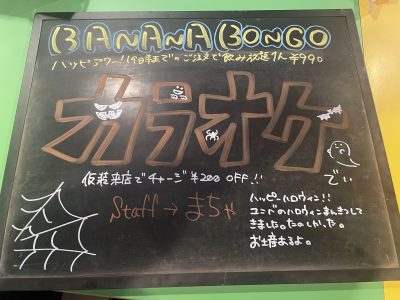 BANANA BONGO
ハッピーアワー!19時までのご注文で飲み放題1人¥990
カラオケ
でぃ
仮装来店でチャージ¥200 OFF!!
Staff→まちゃ
ハッピーハロウィン!!
ユニバのハロウィンまんきつして
きました。たのしかった。
お土産あるよ。